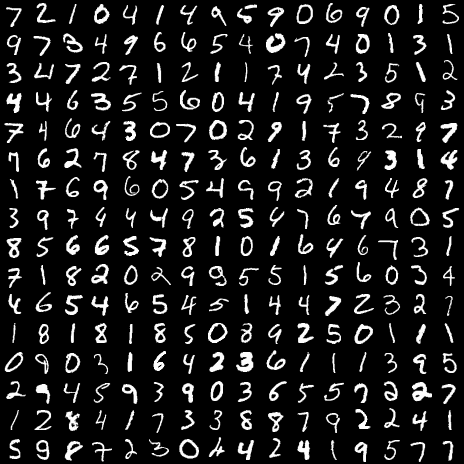 7 2 1 0 4 1 4 9 5 9 0 6 9 0 1 5
9 7 3 4 9 6 6 5 4 0 7 4 0 1 3 1
3 4 7 2 7 1 2 1 1 7 4 2 3 5 1 2
4 4 6 3 5 5 6 0 4 1 9 5 7 8 9 3
7 4 6 4 3 0 7 0 2 9 1 7 3 2 9 7
7 6 2 7 8 4 7 3 6 1 3 6 9 3 1 4
1 7 6 9 6 0 5 4 9 9 2 1 9 4 8 7
3 9 7 4 4 4 9 2 5 4 7 6 7 9 0 5
8 5 6 6 5 7 8 1 0 1 6 4 6 7 3 1
7 1 8 2 0 2 9 9 5 5 1 5 6 0 3 4
4 6 5 4 6 5 4 5 1 4 4 7 2 3 2 7
1 8 1 8 1 8 5 0 8 9 2 5 0 1 1 1
0 9 0 3 1 6 4 2 3 6 1 1 1 3 9 5
2 9 4 5 9 3 9 0 3 6 5 5 7 2 2 7
1 2 8 4 1 7 3 3 8 8 7 9 2 2 4 1
5 9 8 7 2 3 0 4 4 2 4 1 9 5 7 7